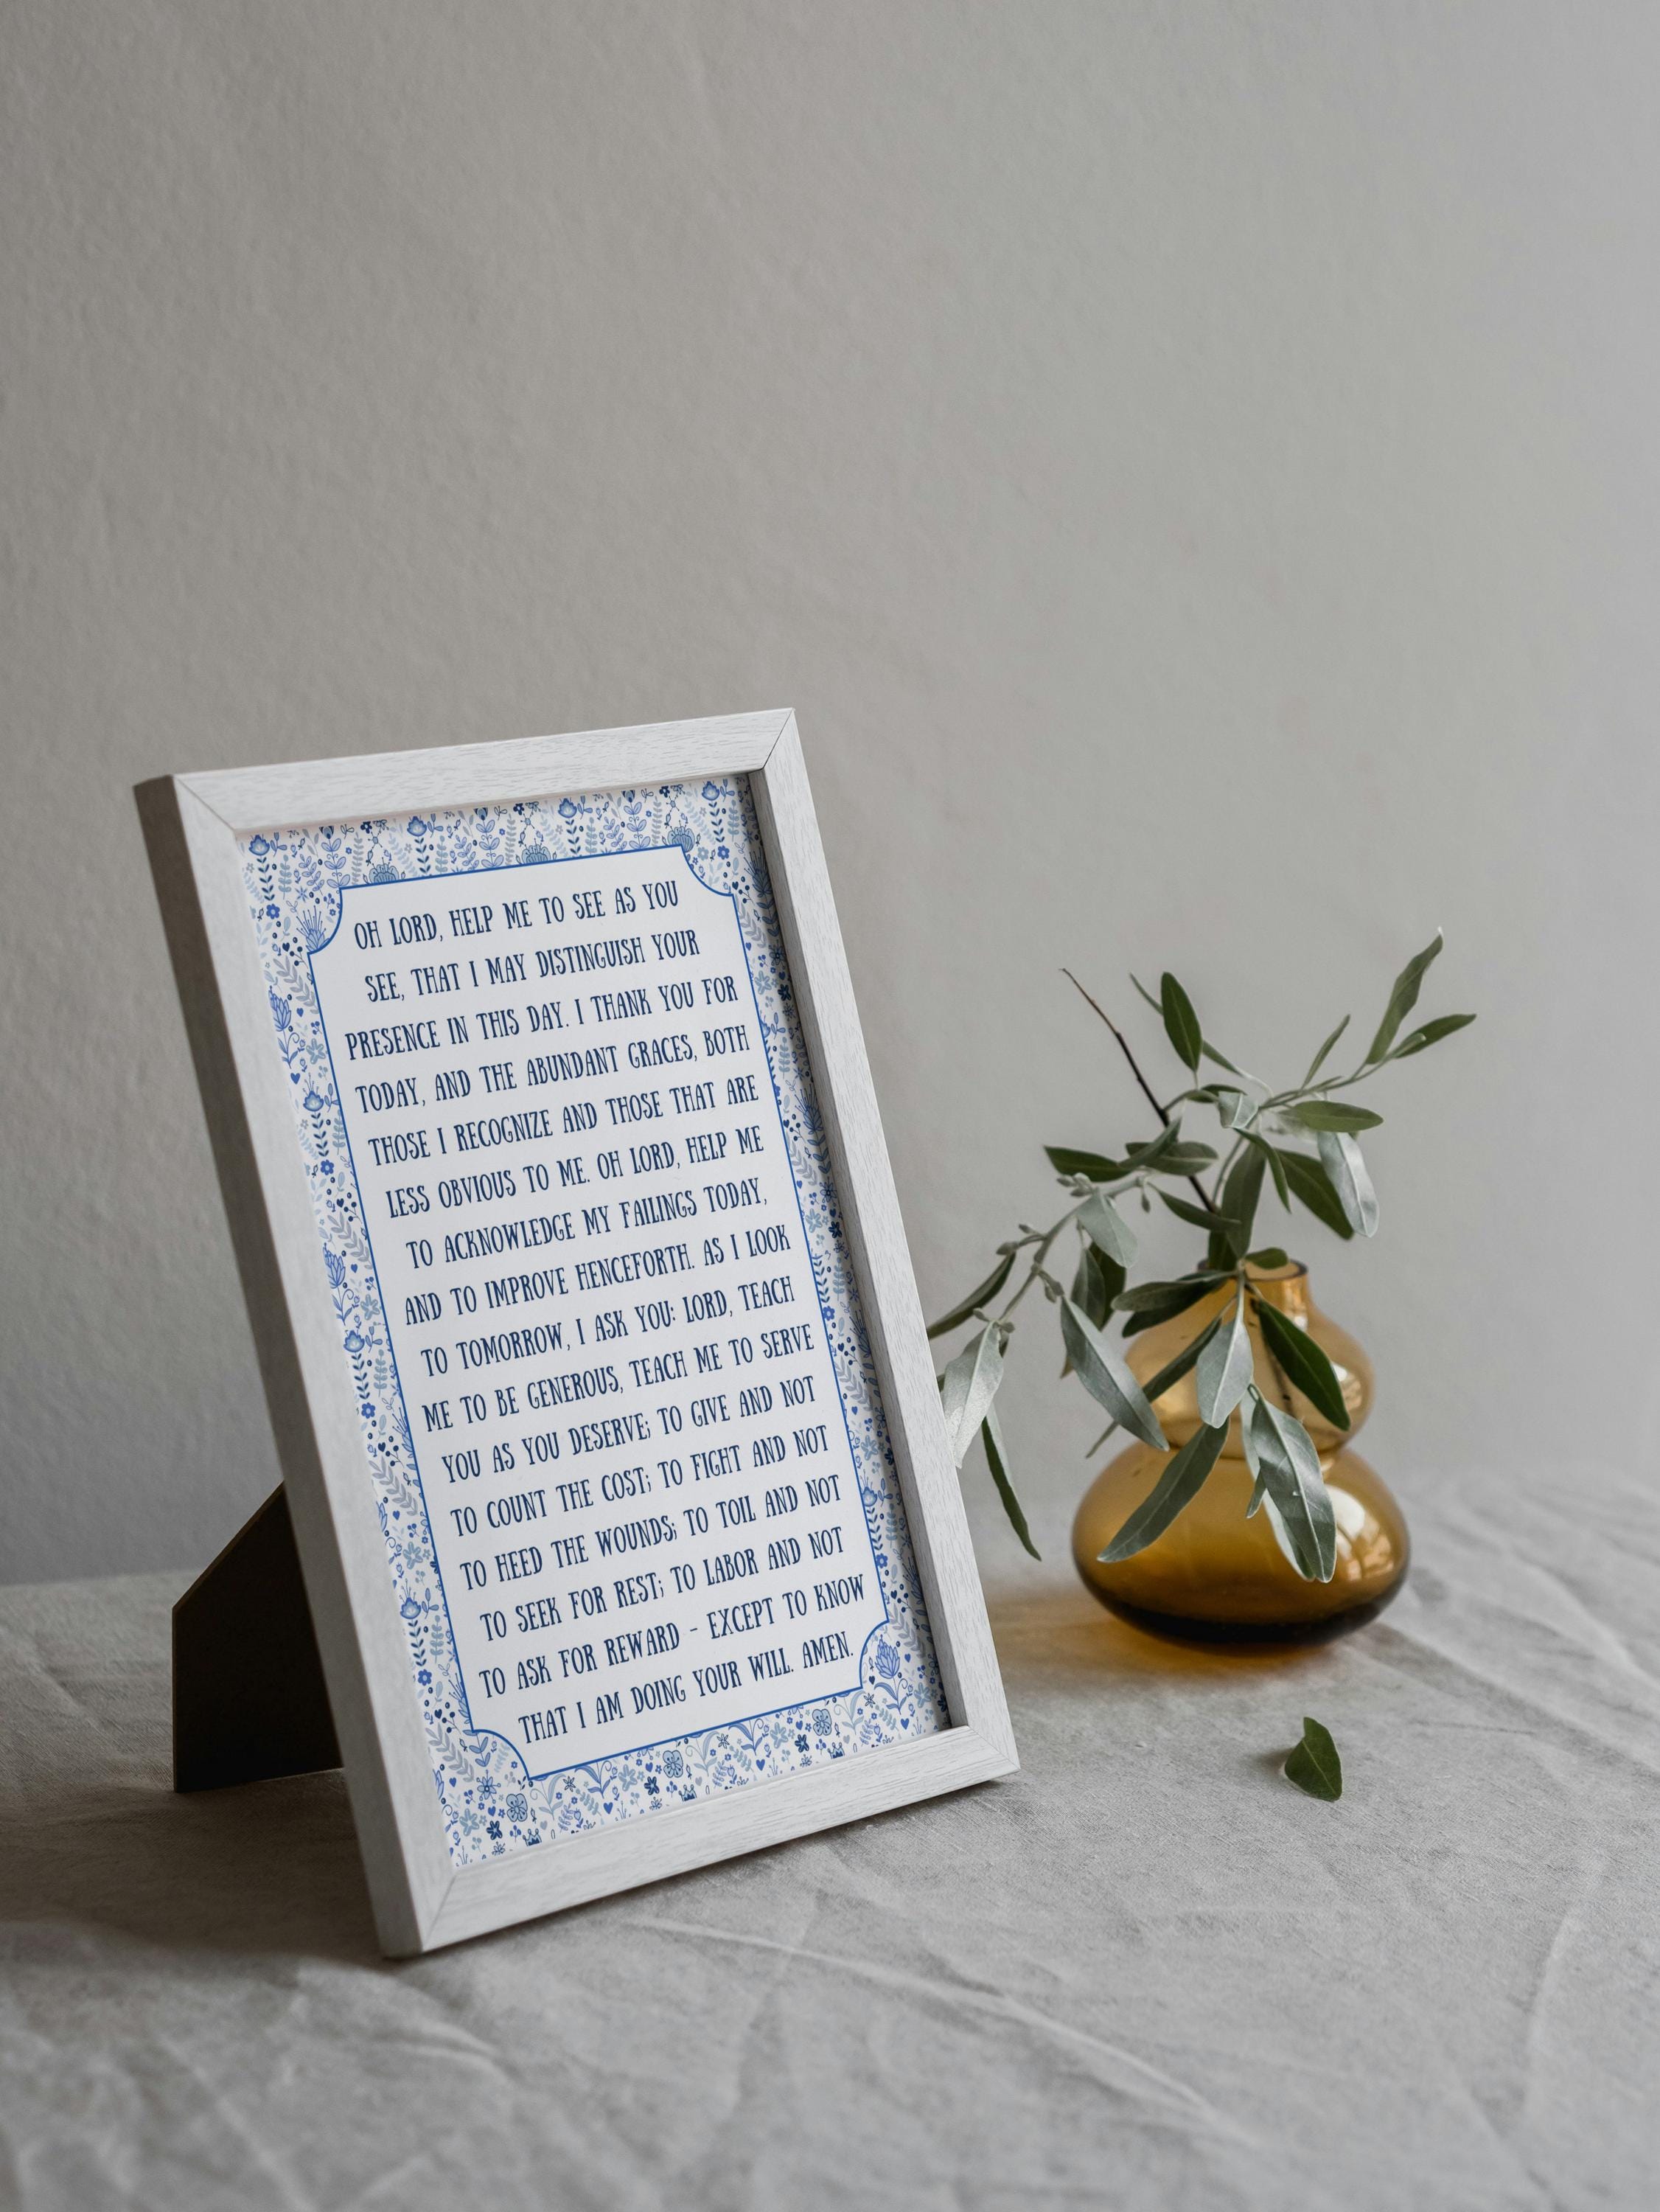 OH LORD, HELP ME TO SEE AS YOU
SEE, THAT I MAY DISTINGUISH YOUR
PRESENCE IN THIS DAY. I THANK YOU FOR
TODAY, AND THE ABUNDANT GRACES, BOTH
THOSE I RECOGNIZE AND THOSE THAT ARE
LESS OBVIOUS TO ME. OH LORD, HELP ME
TO ACKNOWLEDGE MY FAILINGS TODAY,
AND TO IMPROVE HENCEFORTH. AS I LOOK
TO TOMORROW, I ASK YOU: LORD, TEACH
ME TO BE GENEROUS, TEACH ME TO SERVE
YOU AS YOU DESERVE; TO GIVE AND NOT
TO COUNT THE COST; TO FIGHT AND NOT
TO HEED THE WOUNDS; TO TOIL AND NOT
TO SEEK FOR REST; TO LABOR AND NOT
TO ASK FOR REWARD - EXCEPT TO KNOW
THAT I AM DOING YOUR WILL. AMEN.